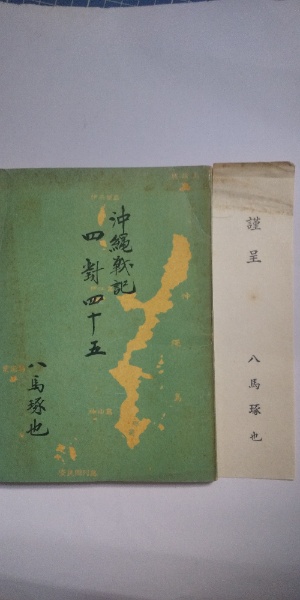 沖縄戦記
四對四十五
八馬琢也
沖
縄
島
謹呈
八馬琢也